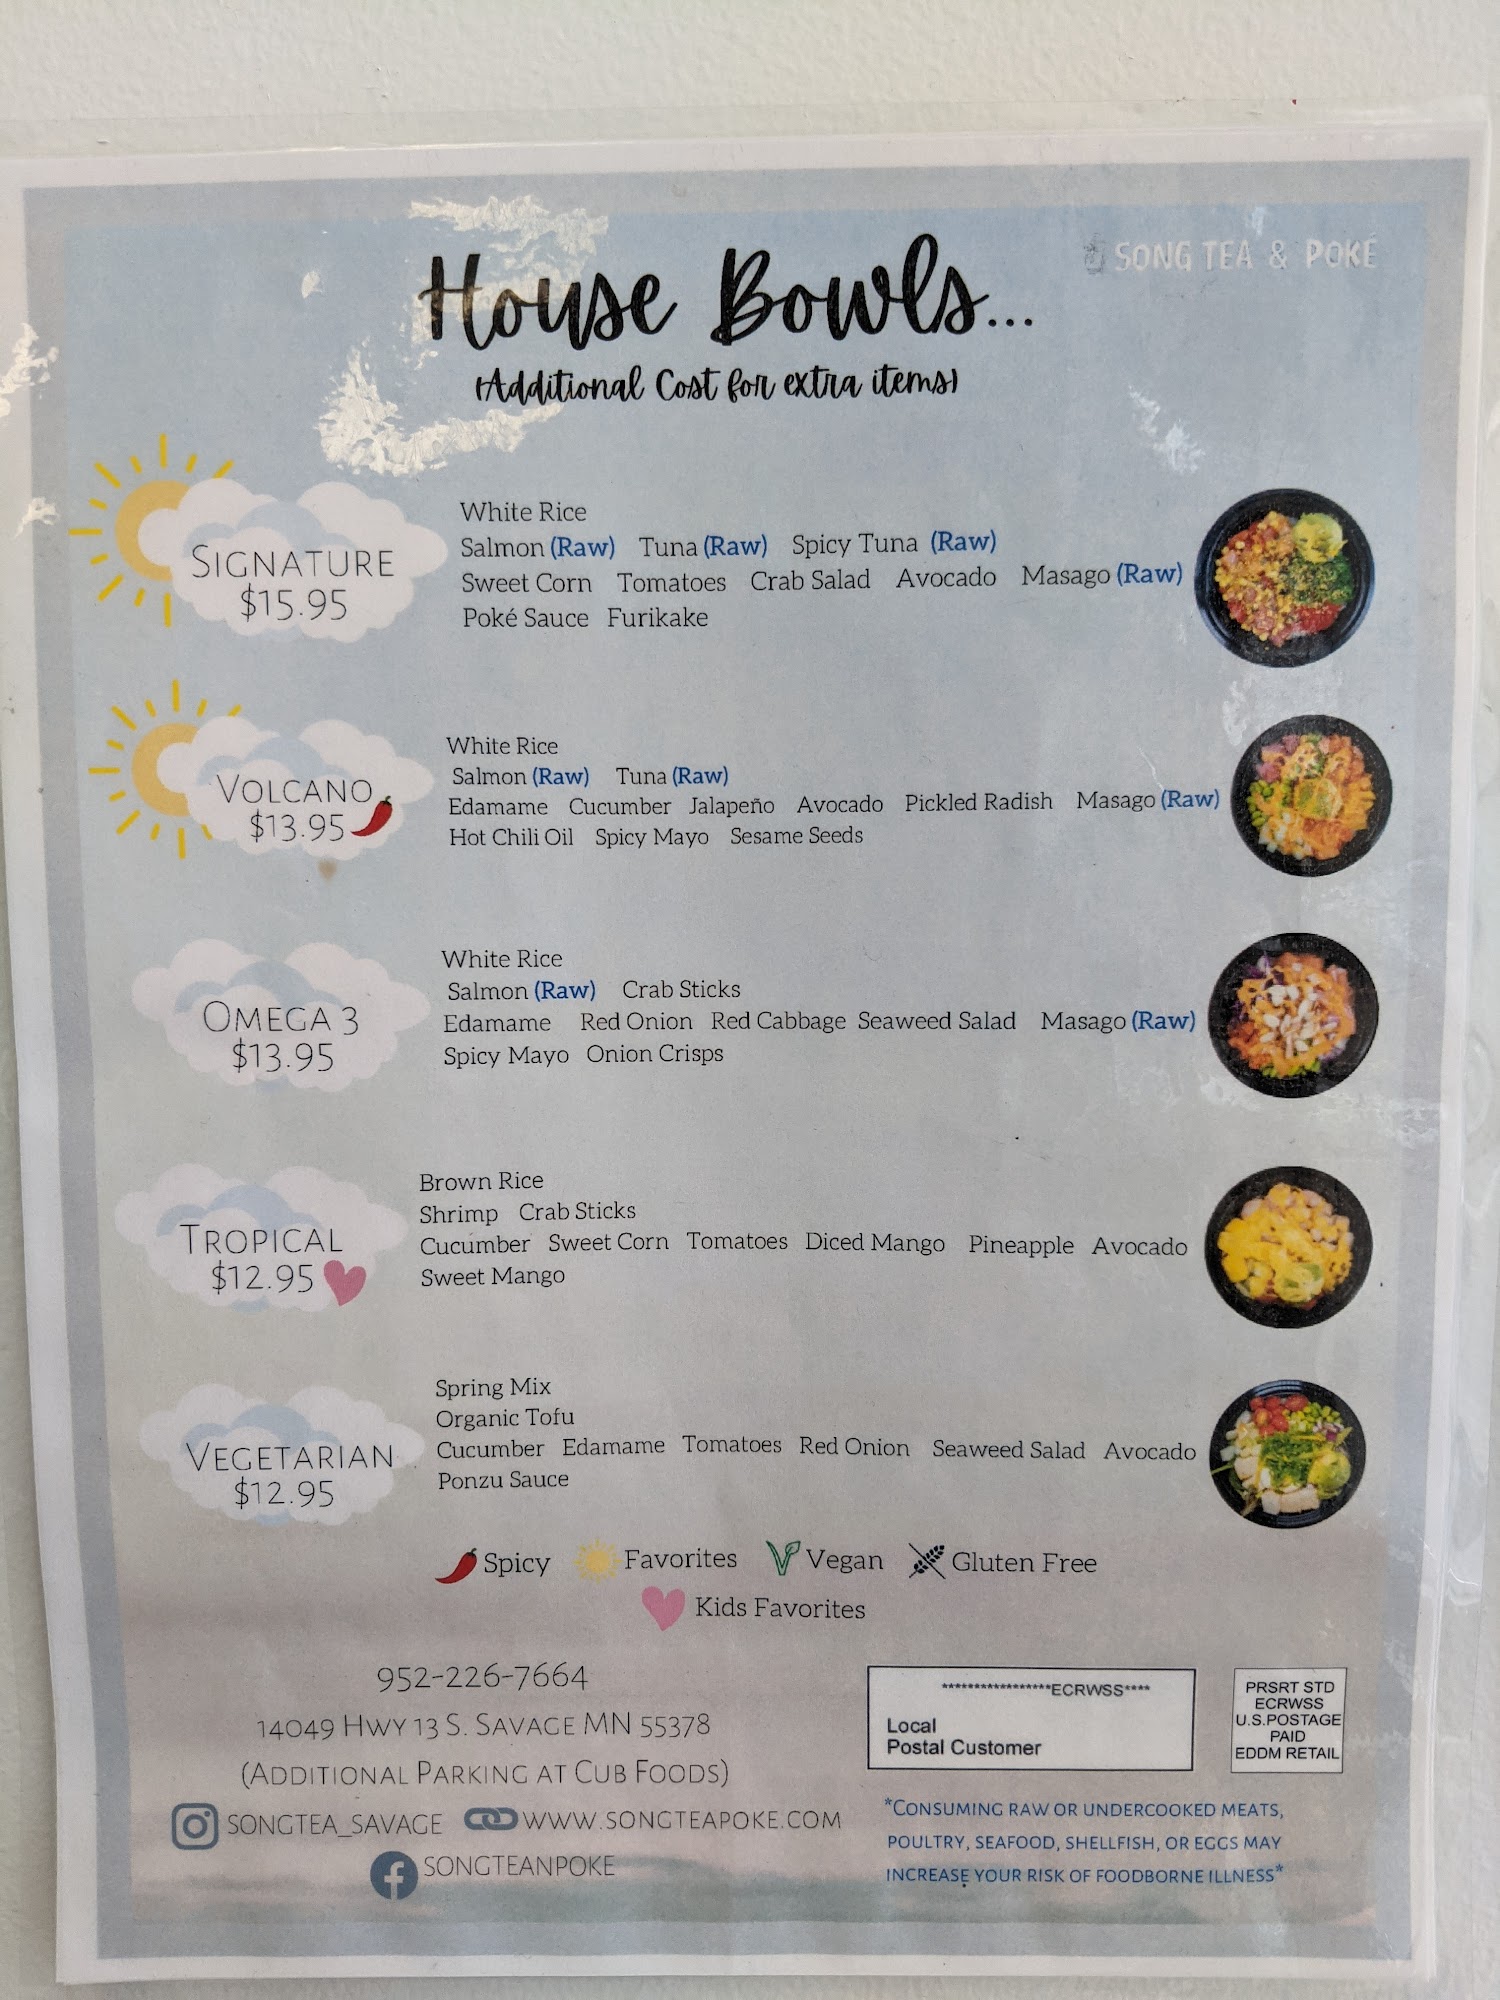 SONG TEA & POKÉ
House Bowls...
(Additional Cost for extra items)
SIGNATURE
$15.95
White Rice
Salmon (Raw) Tuna (Raw) Spicy Tuna (Raw)
Sweet Corn Tomatoes Crab Salad Avocado Masago (Raw)
Poké Sauce Furikake
VOLCANO
$13.95
White Rice
Salmon (Raw) Tuna (Raw)
Edamame Cucumber Jalapeño Avocado Pickled Radish Masago (Raw)
Hot Chili Oil Spicy Mayo Sesame Seeds
OMEGA 3
$13.95
White Rice
Salmon (Raw) Crab Sticks
Edamame Red Onion Red Cabbage Seaweed Salad Masago (Raw)
Spicy Mayo Onion Crisps
TROPICAL
$12.95
Brown Rice
Shrimp Crab Sticks
Cucumber Sweet Corn Tomatoes Diced Mango Pineapple Avocado
Sweet Mango
VEGETARIAN
$12.95
Spring Mix
Organic Tofu
Cucumber Edamame Tomatoes Red Onion Seaweed Salad Avocado
Ponzu Sauce
Spicy Favorites Vegan Gluten Free
Kids Favorites
952-226-7664
14049 HWY 13 S. SAVAGE MN 55378
(ADDITIONAL PARKING AT CUB FOODS)
SONGTEA_SAVAGE WWW.SONGTEAPOKE.COM
SONGTEANPOKE
*****************ECRWSS****
Local
Postal Customer
PRSRT STD
ECRWSS
U.S.POSTAGE
PAID
EDDM RETAIL
*CONSUMING RAW OR UNDERCOOKED MEATS,
POULTRY, SEAFOOD, SHELLFISH, OR EGGS MAY
INCREASE YOUR RISK OF FOODBORNE ILLNESS*